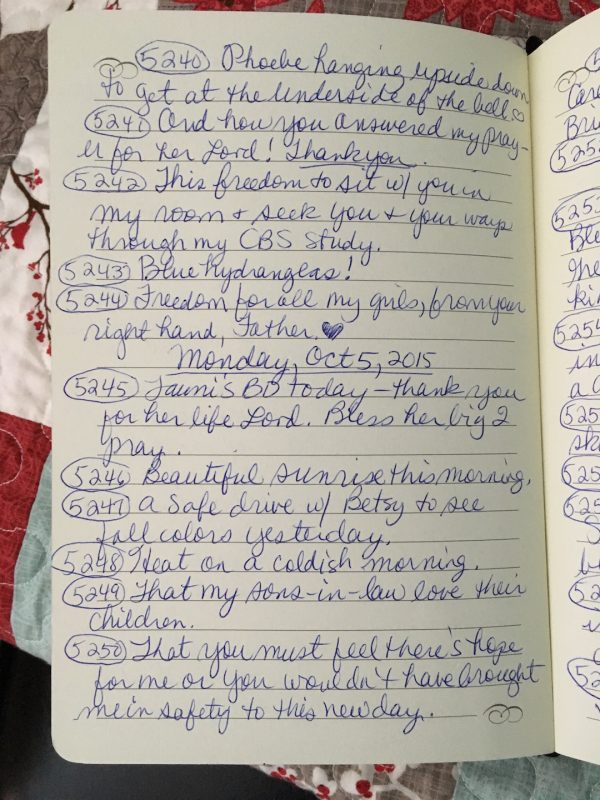 5240 Phoebe hanging upside down
to get at the underside of the bell ♡
5241 And how you answered my pray-
er for her Lord! Thank you.
5242 This freedom to sit w/ you in
my room + seek you + your ways
through my CBS Study.
5243 Blue hydrangeas!
5244 Freedom for all my girls, from your
right hand, Father. ♥
Monday, Oct 5, 2015
5245 Tauni's BD today - thank you
for her life Lord. Bless her big I
pray.
5246 Beautiful sunrise this morning.
5247 A safe drive w/ Betsy to see
fall colors yesterday.
5248 Heat on a coldish morning.
5249 That my sons-in-law love their
children.
5250 That you must feel there's hope
for me or you wouldn't have brought
me in safety to this new day.
Care
Bri
525
5253
Ble
the
kin
5254
in
a C
525
sk
525
525
S
be
52
is
52